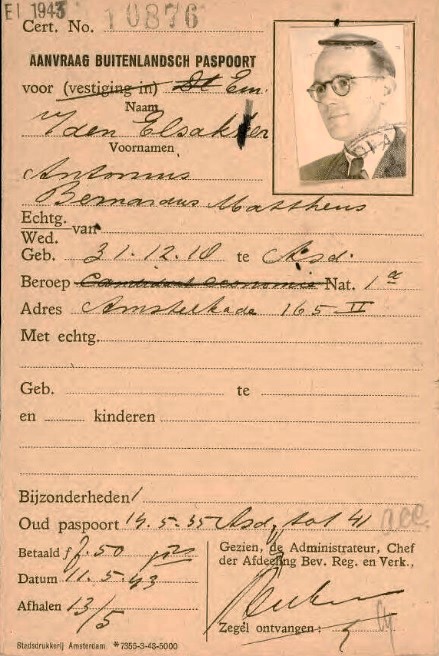 EI 1943
Cert. No. 10876
AANVRAAG BUITENLANDSCH PASPOORT
voor (vestiging in)
Naam
den Elsakker
Voornamen
Antonius
Bernardus Mattheus
Echtg.
Wed. van
Geb. 31.12.10 te Asd.
Beroep Candidaat economie Nat. 1e
Adres Amstelkade 165-II
Met echtg.
Geb. te
en kinderen
Bijzonderheden
Oud paspoort 14.5.35 Asd, tot 41
Betaald f 7.50
Datum 11.5.43
Afhalen 13/5
Gezien, de Administrateur, Chef
der Afdeeling Bev. Reg. en Verk.,
Zegel ontvangen:
Stadsdrukkerij Amsterdam *7355-3-43-5000